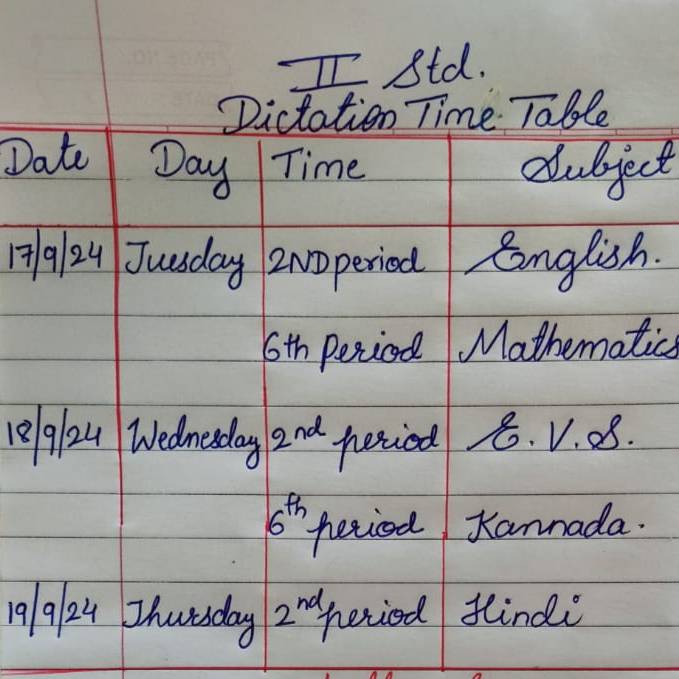 II Std.
Dictation Time Table
Date Day Time Subject
17/9/24 Tuesday 2ND period English.
6th Period Mathematics
18/9/24 Wednesday 2nd period E.V.S.
6th period Kannada.
19/9/24 Thursday 2nd period Hindi